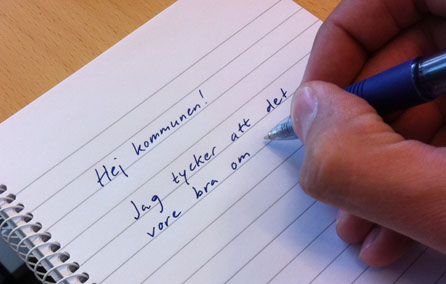 Hej kommunen!
Jag tycker att det
vore bra om